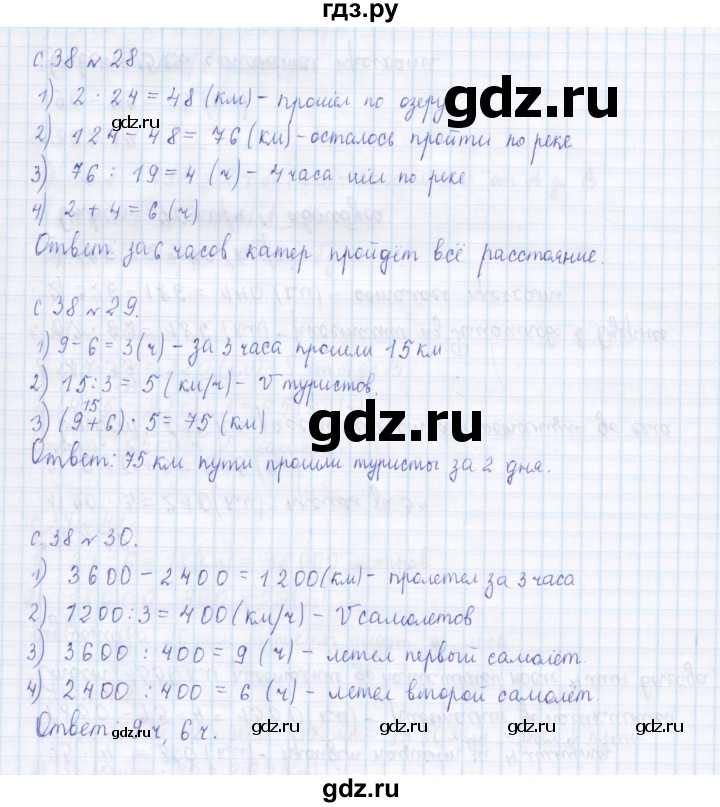 гдз.ру
с 38 № 28.
1) 2 · 24 = 48 (км) - прошёл по озеру
gdz.ru
2) 124 - 48 = 76 (км) - осталось пройти по реке
3) 76 : 19 = 4 (ч) - 4 часа шёл по реке
4) 2 + 4 = 6 (ч)
Ответ за 6 часов катер пройдёт всё расстояние.
с 38 № 29.
1) 9 - 6 = 3 (ч) - за 3 часа прошли 15 км
2) 15 : 3 = 5 (км/ч) - V туристов.
15
3) (9 + 6) · 5 = 75 (км)
gdz.ru
Ответ: 75 км пути прошли туристы за 2 дня.
с. 38 № 30.
1) 3600 - 2400 = 1200 (км) - пролетел за 3 часа
2) 1200 : 3 = 400 (км/ч) - V самолетов
3) 3600 : 400 = 9 (ч) - летел первый самолёт.
4) 2400 : 400 = 6 (ч) - летел второй самолёт.
Ответ: 9 ч, 6 ч.
gdz.ru gdz.ru gdz.ru gdz.ru gdz.ru
gdz.ru